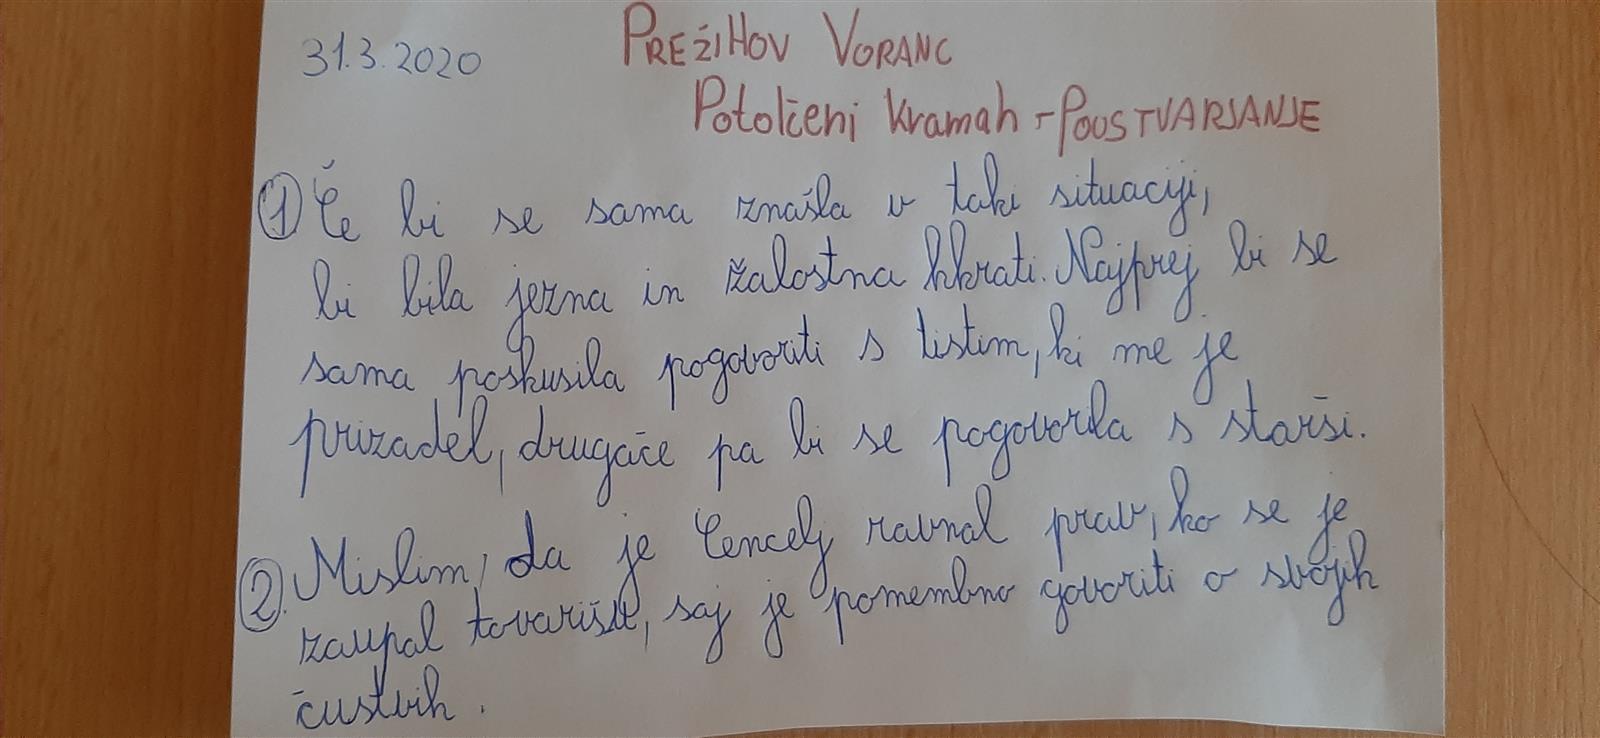 31.3.2020
PREŽIHOV VORANC
Potolčeni kramah - POUSTVARJANJE
1 Če bi se sama znašla v taki situaciji,
bi bila jezna in žalostna hkrati. Najprej bi se
sama poskusila pogovoriti s tistim, ki me je
prizadel, drugače pa bi se pogovorila s starši.
2. Mislim, da je Cencelj ravnal prav, ko se je
zaupal tovarišu, saj je pomembno govoriti o svojih
čustvih.